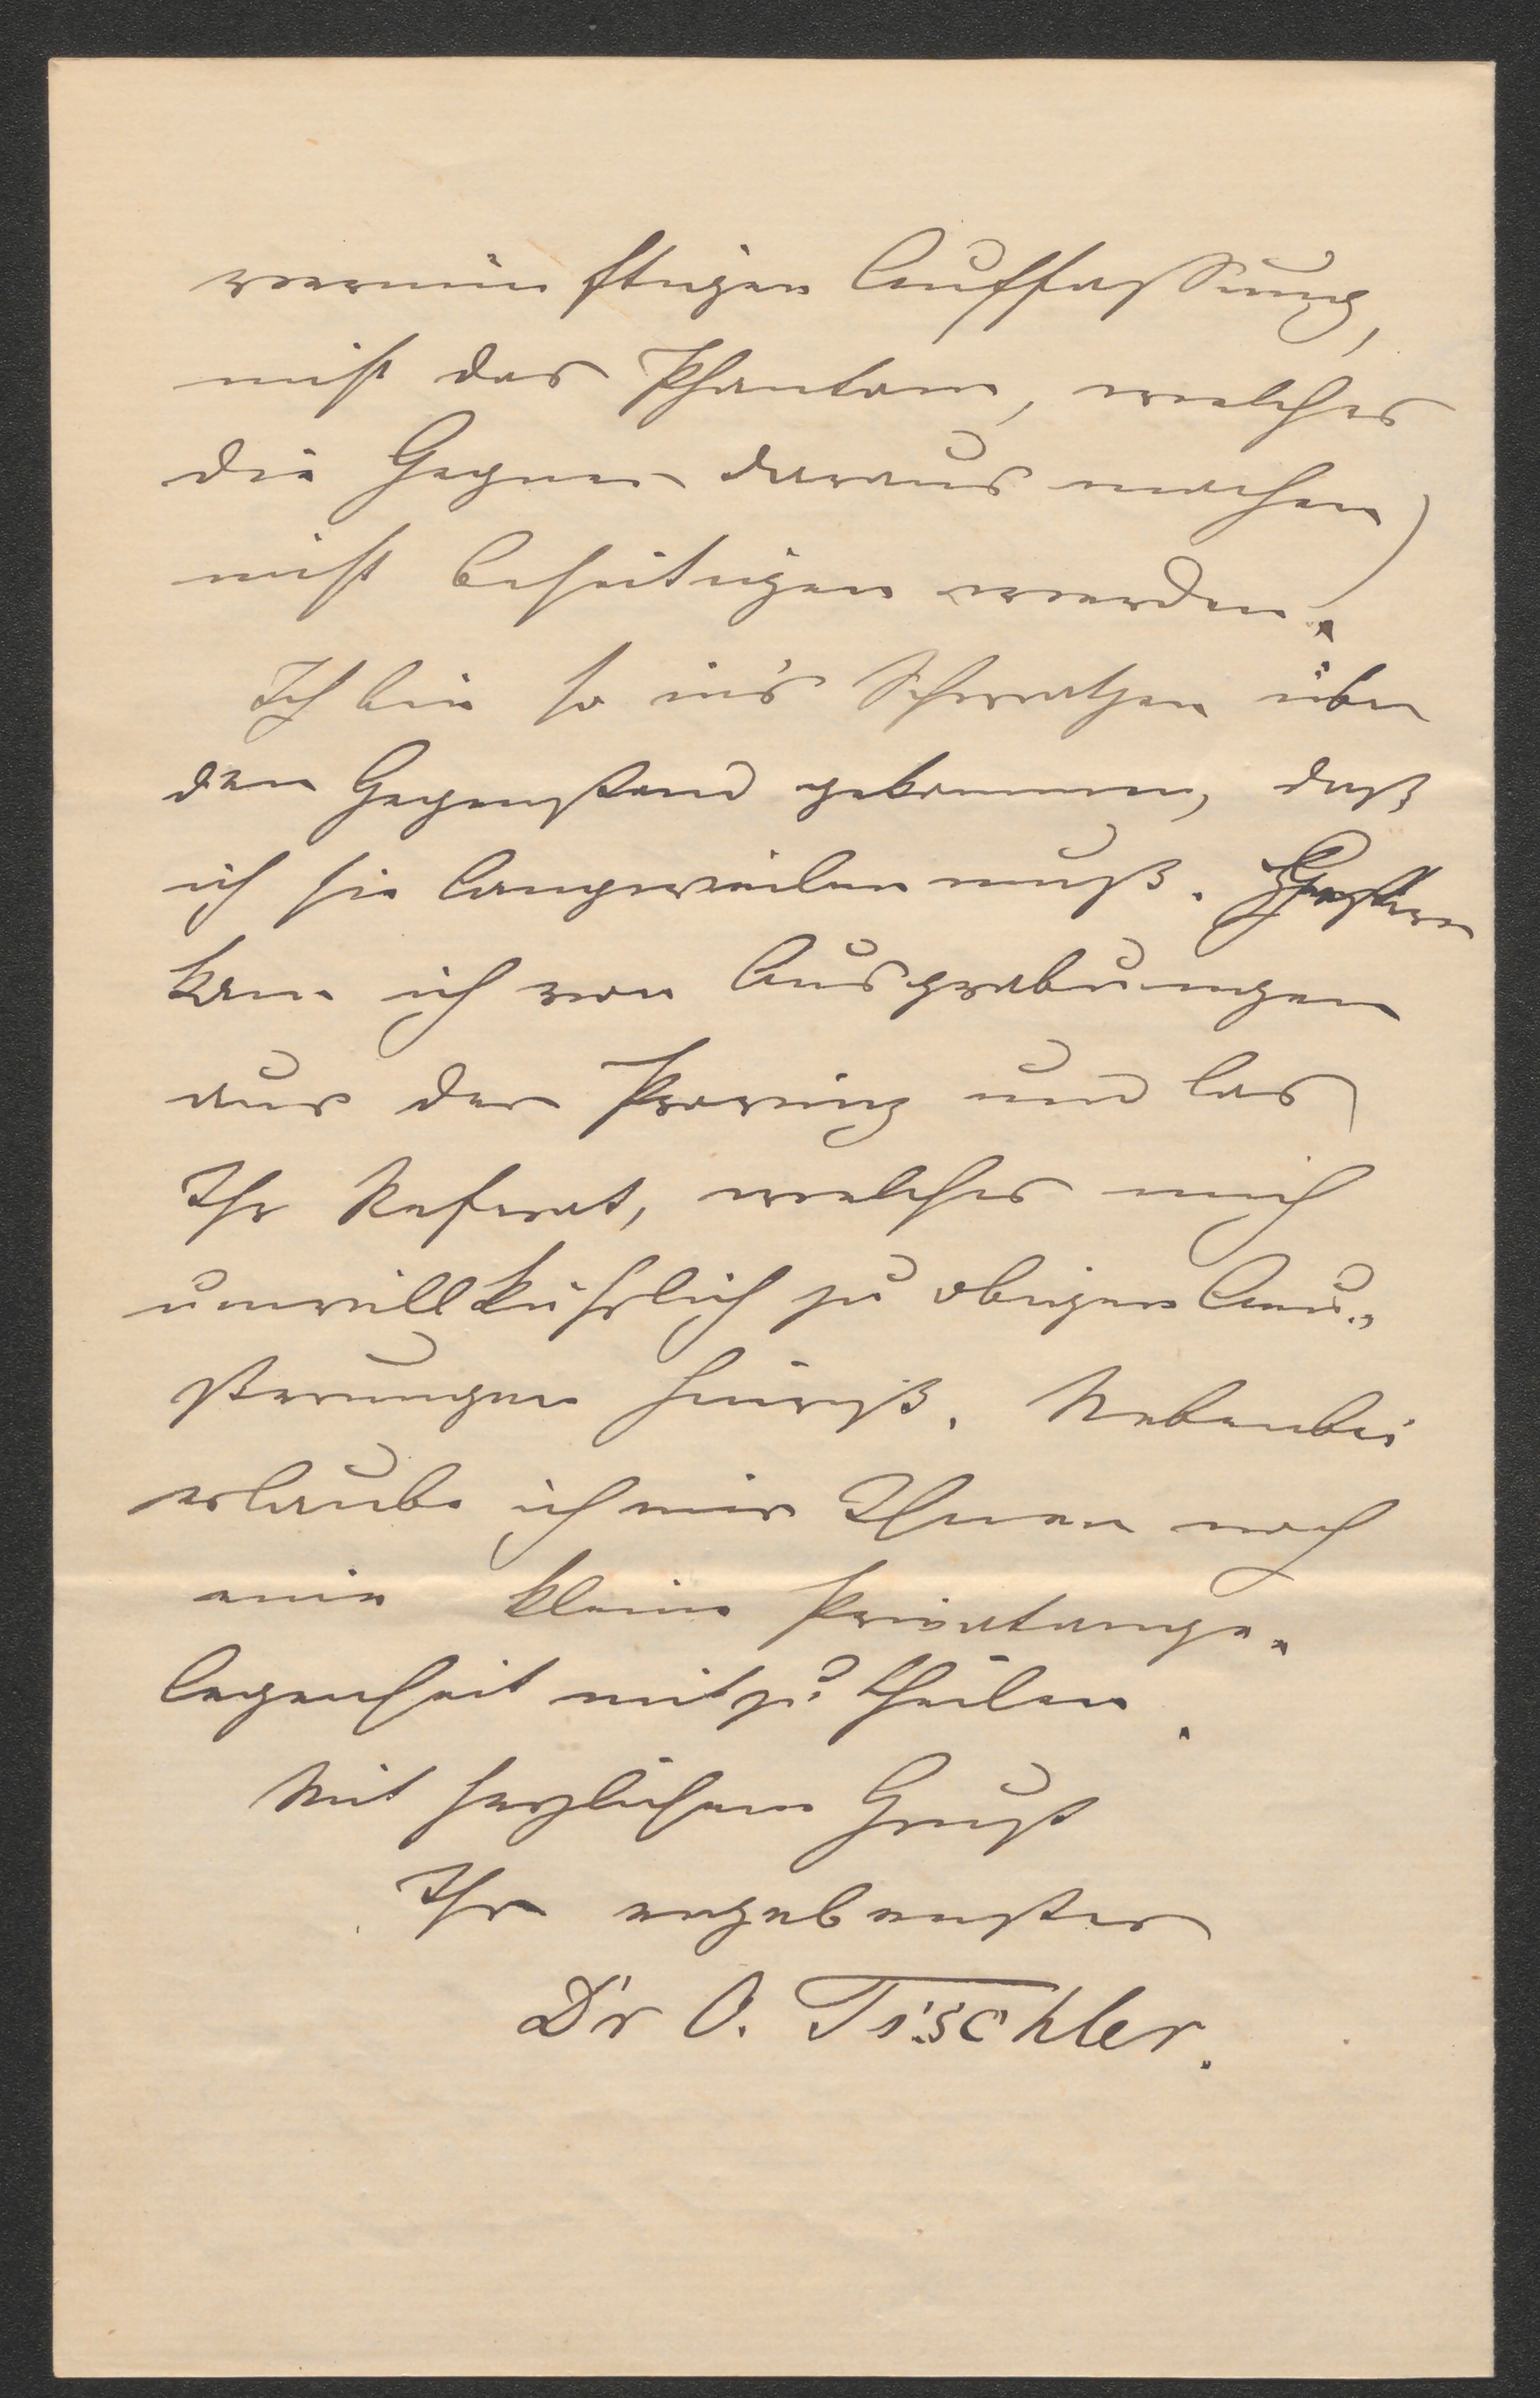 vernünftigen Auffassung,
nicht das Phantom, welches
die Gegner daraus machen)
nicht beseitigen werden.
Ich bin so in's Schwatzen über
den Gegenstand gekommen, daß
ich sie langweilen muß. Gestern
kam ich von Ausgrabungen
aus der Provinz und las
Ihr Referat, welches mich
unwillkührlich zu obigen Aeu-
ßerungen hinriß. Nebenbei
erlaube ich mir Ihnen noch
eine kleine Privatange-
legenheit mitzutheilen.
Mit herzlichem Gruß
Ihr ergebenster
Dr O. Tischler.